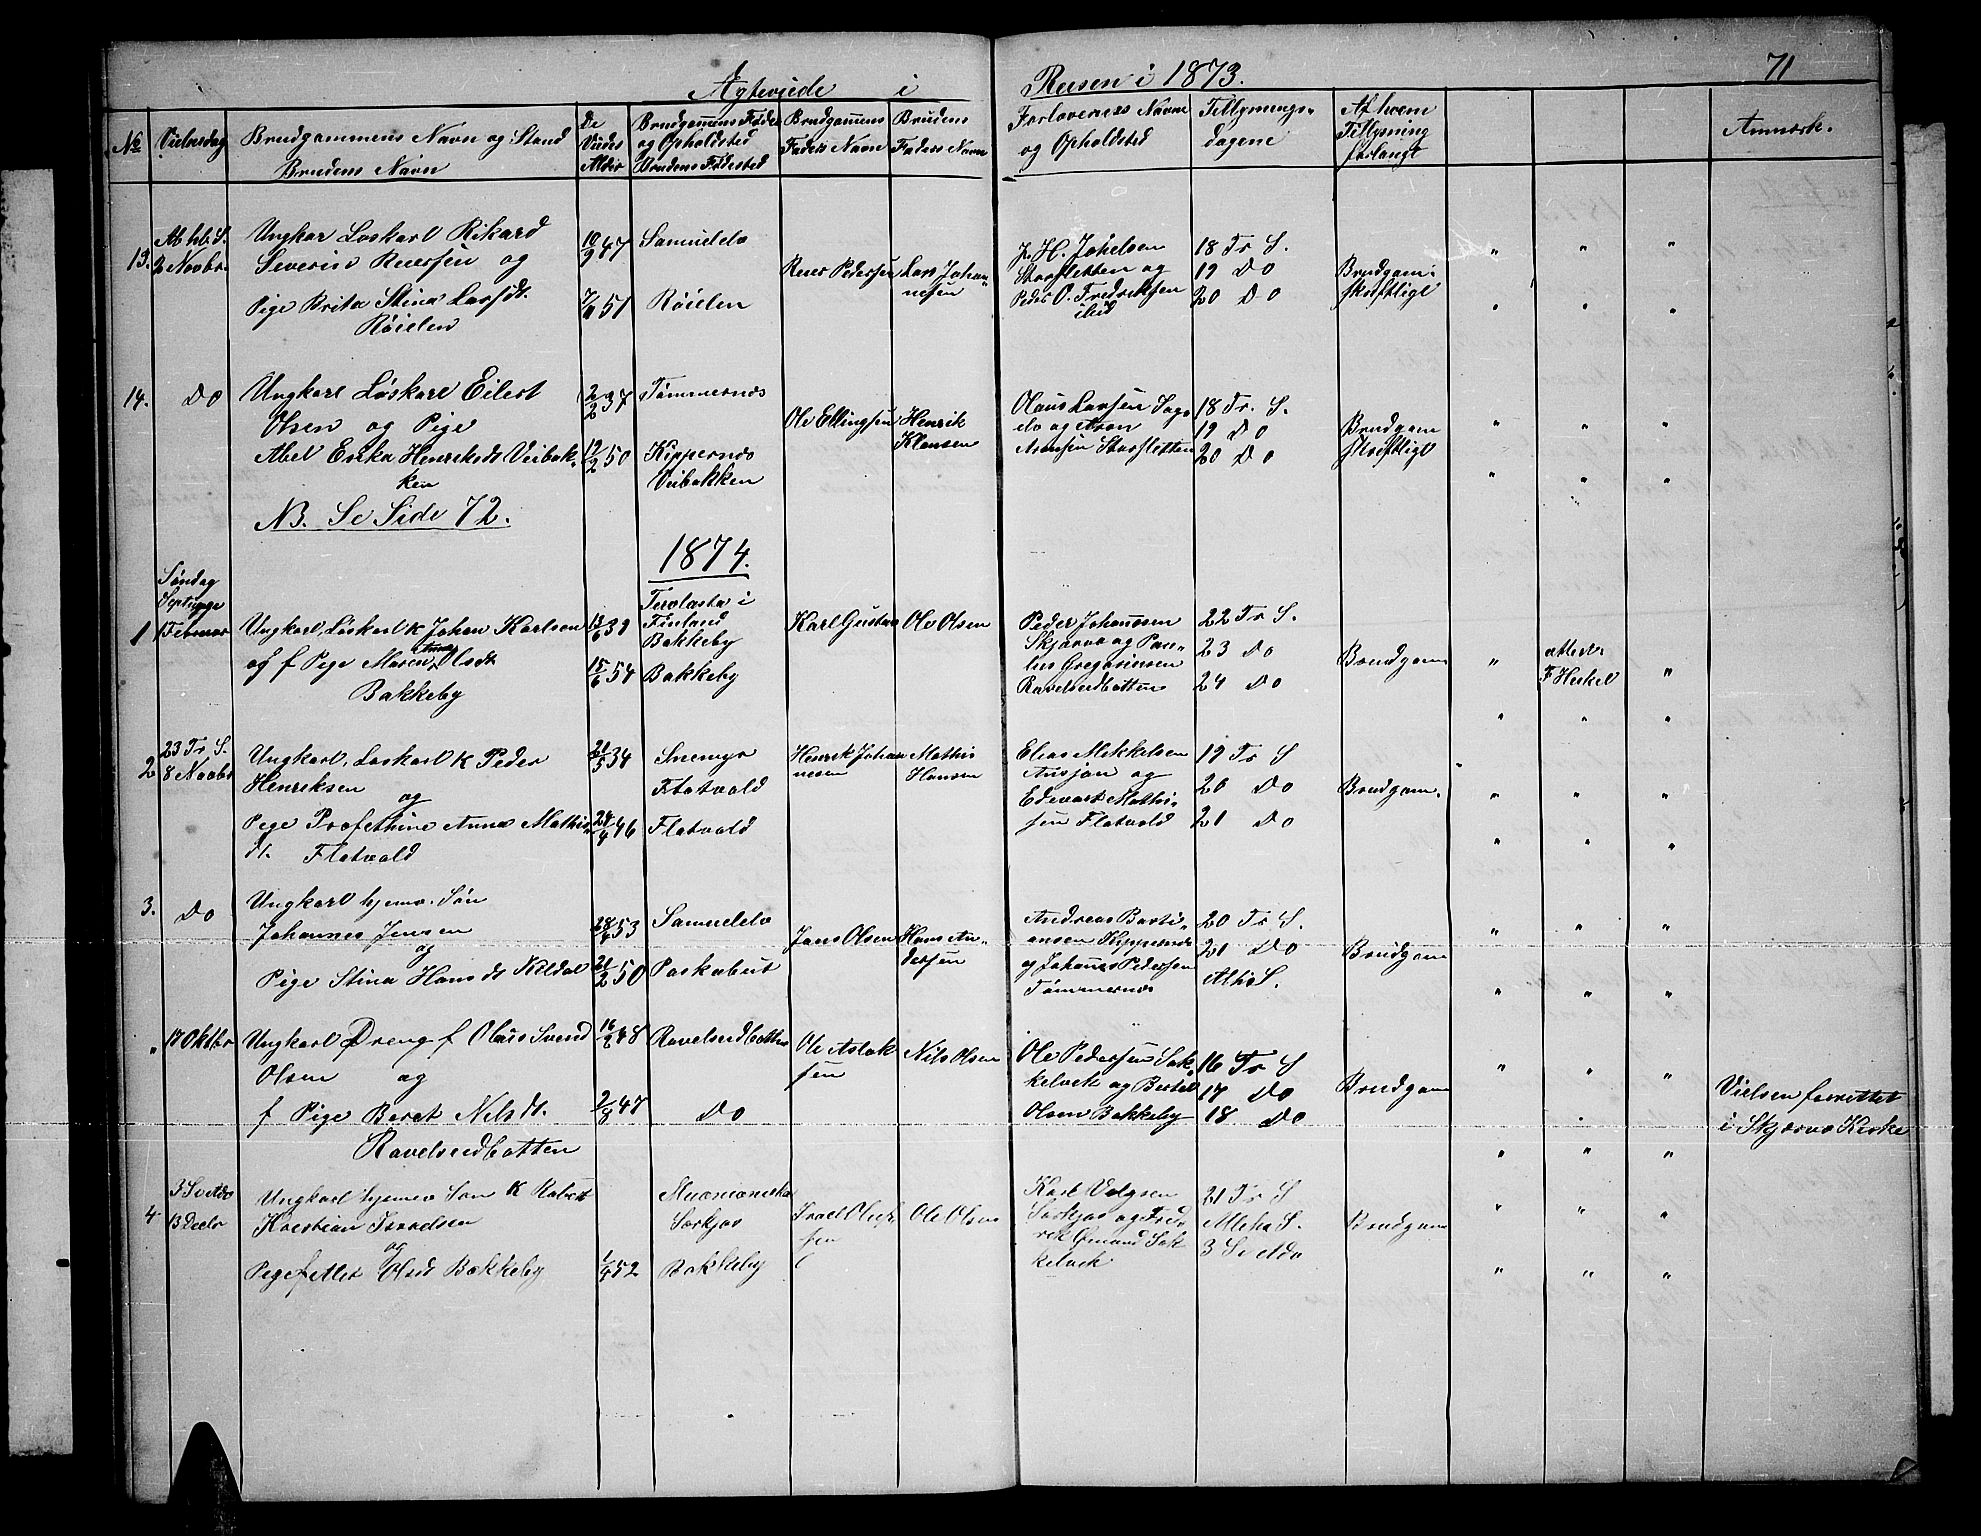 Ægteviede i Reisen i 1873. 71
No Vielsesdag Brudgommens Navn og Stand Brudens Navn
De Viedes Alder
Brudgommens Føde og Opholdsted Brudens Fødested
Brudgommens Faders Navn
Brudens Faders Navn
Forlovernes Navne og Opholdsted
Tillysningsdagene
Af hvem Tillysning forlangt
Anmærk.
13. Alleh. S. 2 Novbr.
Ungkar Løskarl Rikard
Severin Reiersen og
Pige Brita Stina Larsdt.
Røielen
10/9 47
7/6 51
Samuelelv
Røielen
Reier Pedersen
Lars Johannesen
J. H. Johelsen
Storsletten og
Peder O. Fredriksen
ibid
18 Tr S.
19 Do
20 Do
Brudgom
skriftlige
14. Do
Ungkarl Løskarl Eilert
Olsen og Pige
Abel Erika Henriksdt Veibak-
ken
NB. Se Side 72.
2/2 37
19/2 50
Tømmernes
Kippernes
Veibakken
Ole Ellingsen
Henrik
Klausen
Olaus Larsen Sags
elv og Aron
Aronsen Storsletten
18 Tr. S.
19 Do
20 Do
Brudgom
skriftlige
1874.
1 Søndag
Septuage
1 Februar
Ungkarl, Løskarl K Johan Karlsen
og f Pige Maren Anna Olsdt
Bakkeby
13/6 39
15/6 54
Finland
Bakkeby
Bakkeby
Karl Gustav
Ole Olsen
Peder Johannesen
Skjærvø og
Gregoriusen
Ravelseidbotten
22 Tr S.
23 Do
24 Do
Brudgom
attester
F Heskel
2 23 Tr S.
8 Novbr
Ungkarl, Løskarl K Peder
Henriksen
og
Pige Profethine Anna Mathis-
dt. Flatvold
21/5 34
24/4 46
Snemyr
Flatvold
Flatvold
Henrik Johan
nesen
Mathis
Hansen
Elias Mikkelsen
og
Edevart Mathi-
sen Flatvold
19 Tr S
20 Do
21 Do
Brudgom.
3. Do
Ungkarl hjemv. Søn
Johannes Jensen
og
Pige Stina Hansdt Kildal
28/6 53
21/2 50
Samuelelv
Paskabut
Jens Olsen
Hans An-
dersen
Andreas Barti-
ansen Kippernes
og Johanes Pedersen
Tømmernes
20 Tr S.
21 Do
Alh S.
Brudgom
" 17 Oktbr
Ungkarl Dreng f Olaus Svend
Olsen og
f Pige Beret Nilsdt.
Ravelseidbotten
16/2 48
2/8 47
Ravelseidbotten
Do
Ole Aslak
sen
Nils Olsen
Ole Pedersen Sak-
kelvik og Bertel
Olsen Bakkeby
16 Tr S
17 Do
18 Do
Brudgom
Vielsen forrettet
i Skjærvø Kirke
4 3 S i Adv
13 Decbr
Ungkarl hjemv Søn K Robert
Kristian Israelsen
og
Pige Olsd Bakkeby
1/4 52
Sørkjos
Bakkeby
Israel
sen
Ole Olsen
Karl
Sørkjos og Fred
rik Sak
kelvik
21 Tr S
Alleha S.
3 S i Adv
Brudgom